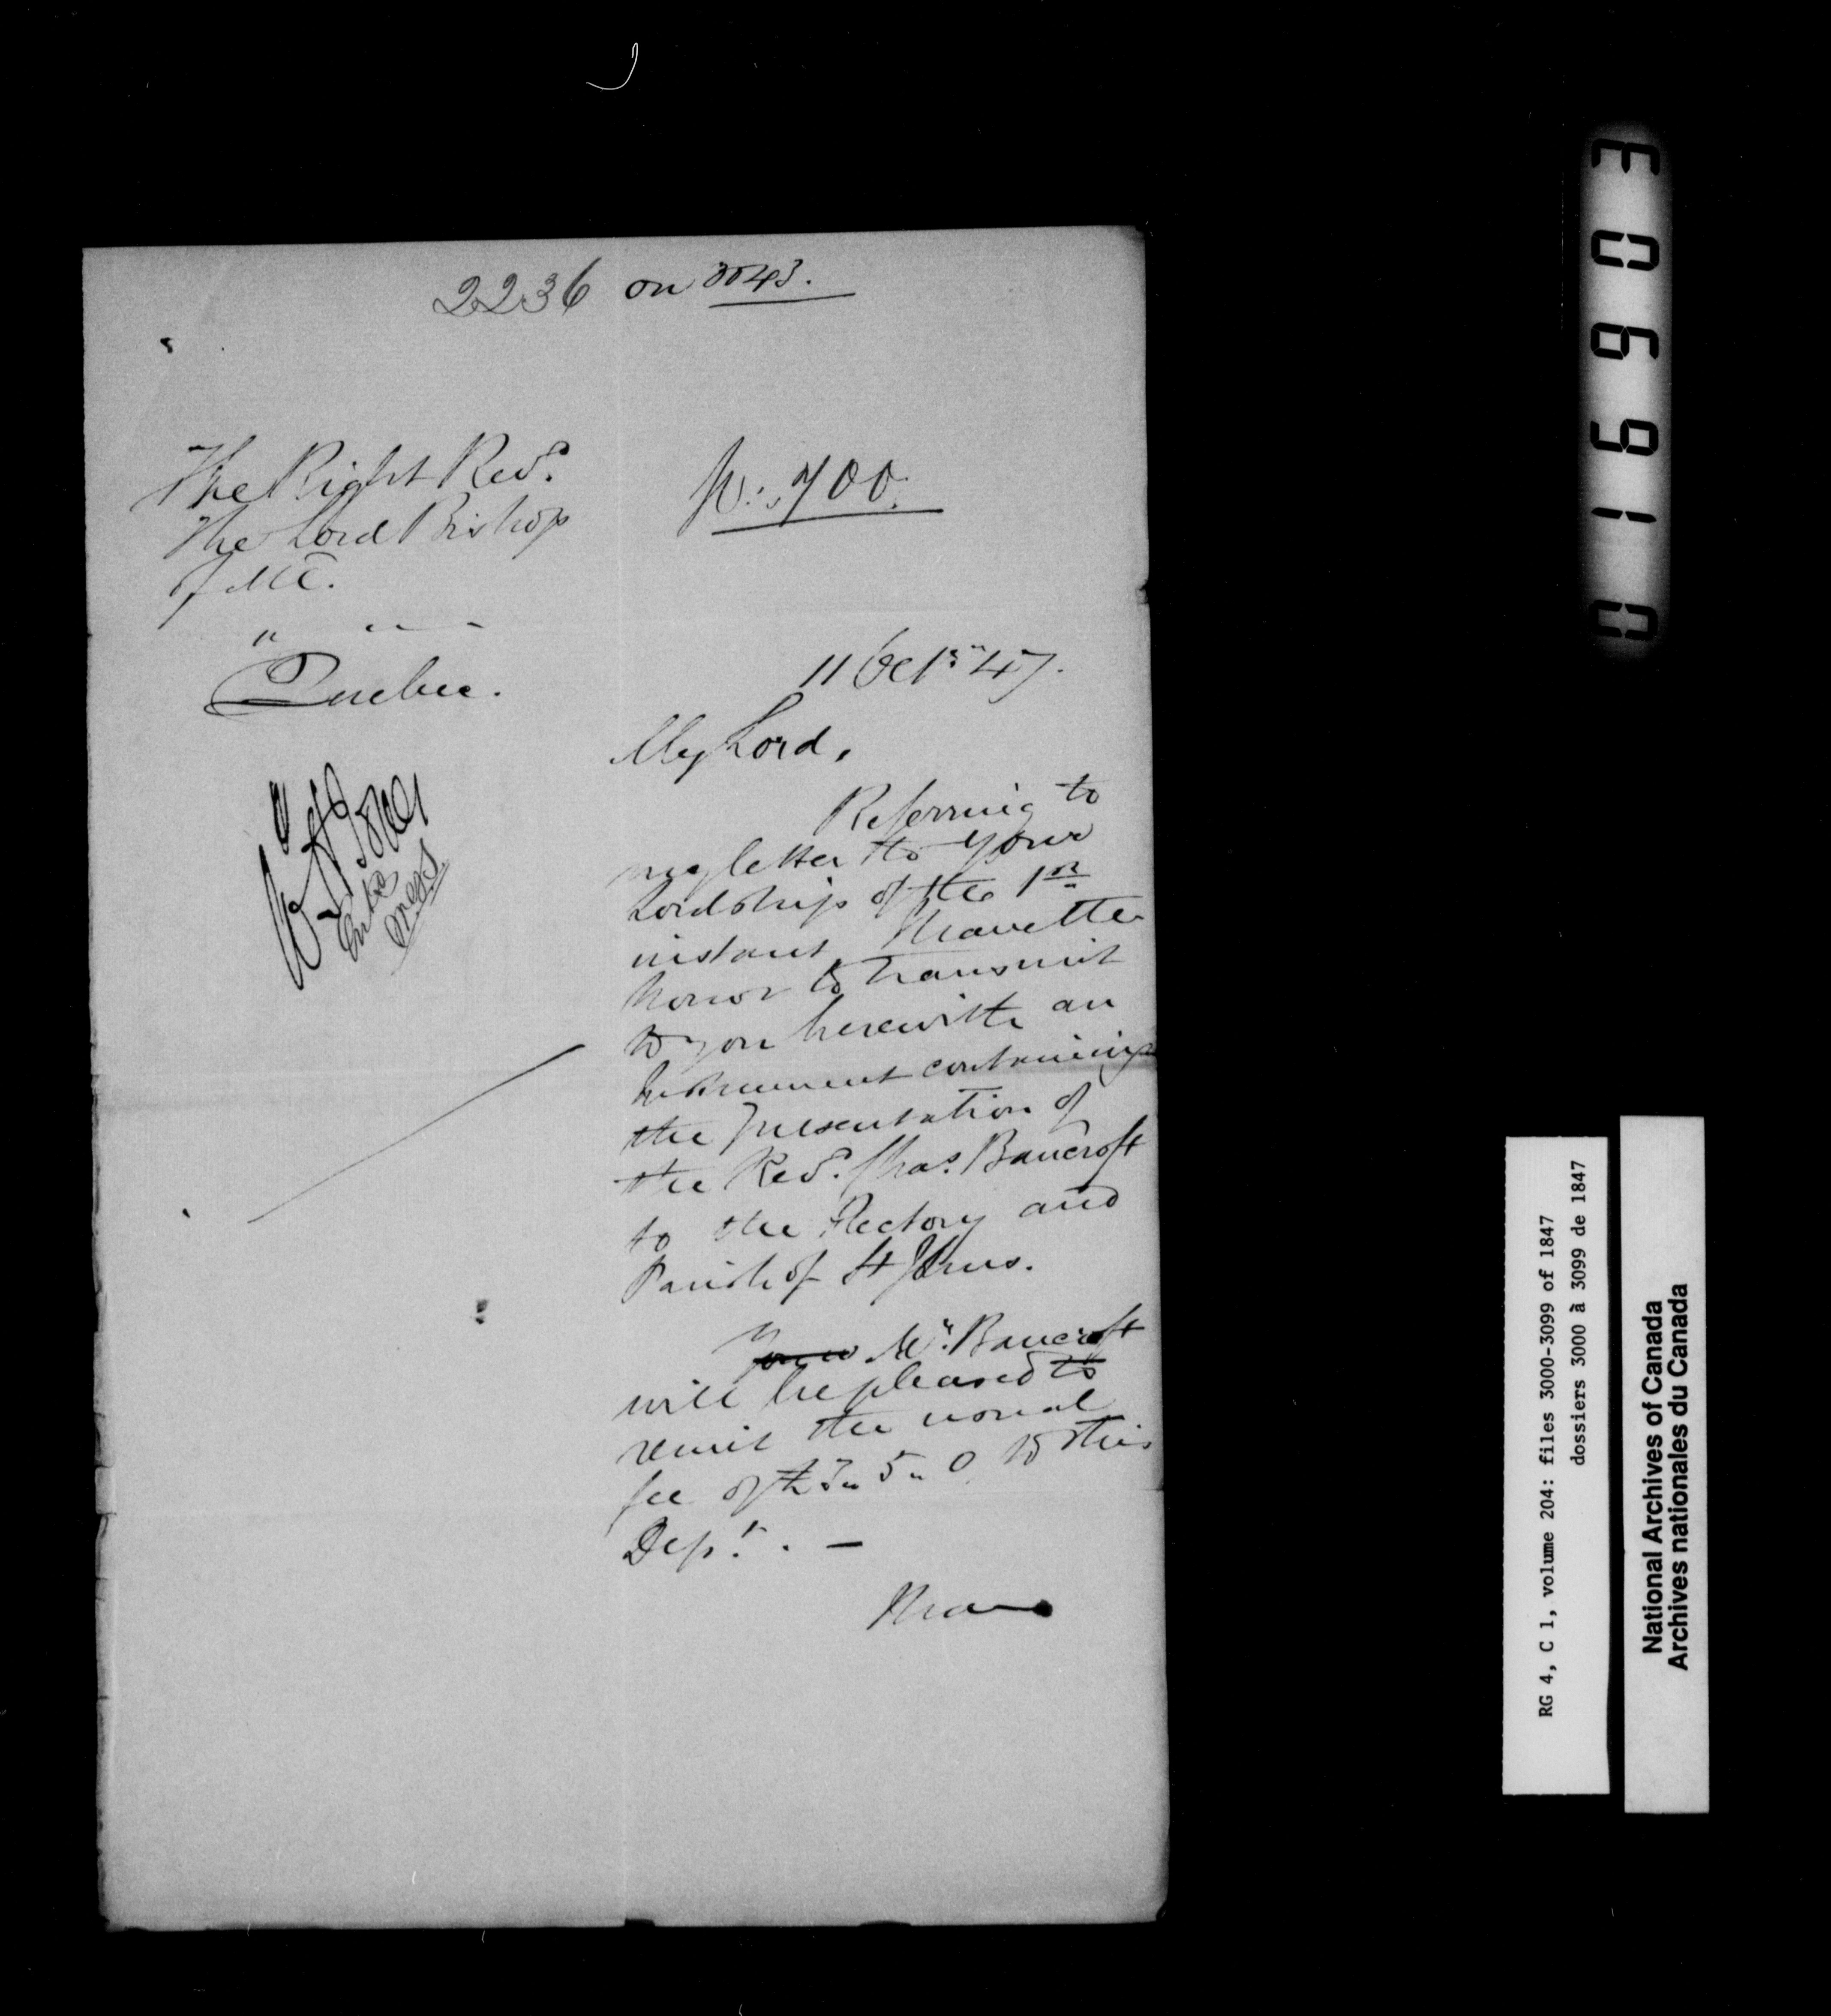 2236 on 3043.
The Right Revd.
The Lord Bishop
of Ml.
" " -
Quebec.
11 Octr. 47.
My Lord,
Referring to
my letter to your
Lordship of the 1st
instant I have the
honor to transmit
to you herewith an
Instrument containing
the presentation of
the Revd. Chas. Bancroft
to the Rectory and
Parish of St Johns.
Mr. Bancroft
will be pleased to
remit the usual
fee of £ 3 " 5 " 0 to this
Dept. . —
I have
Entd
036610
RG 4, C 1, volume 204: files 3000-3099 of 1847
dossiers 3000 à 3099 de 1847
National Archives of Canada
Archives nationales du Canada